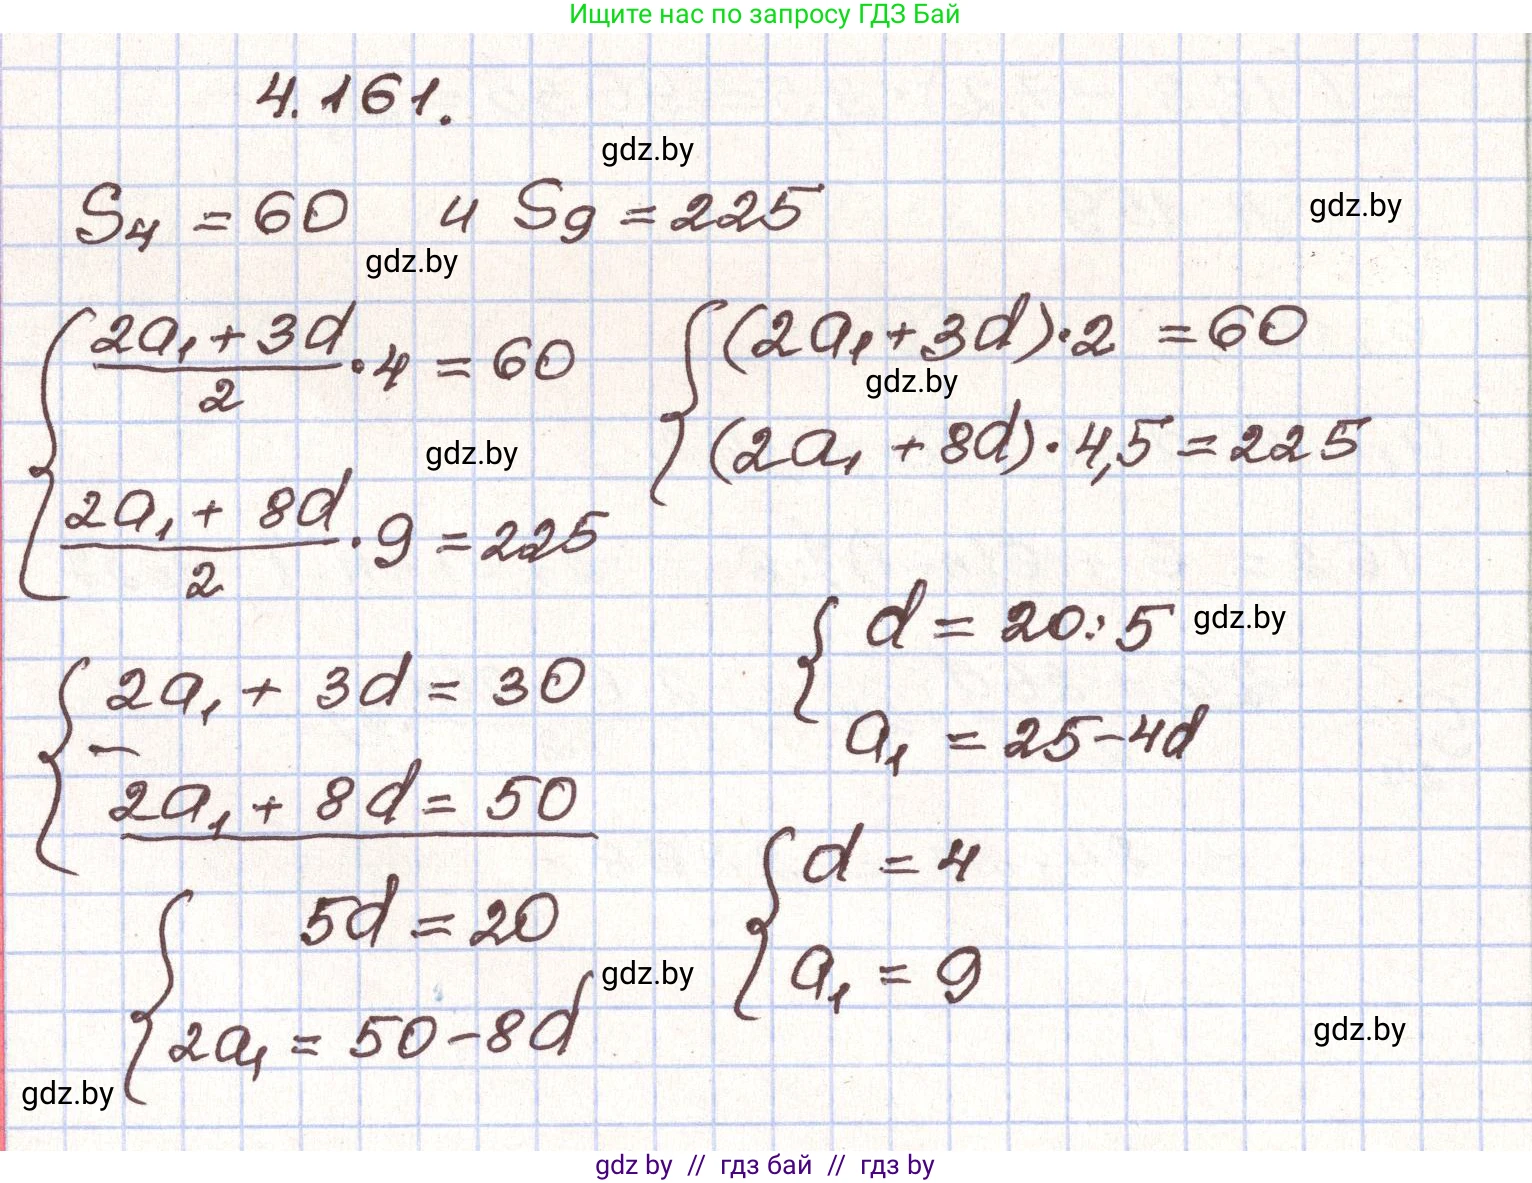 Ищите нас по запросу ГДЗ Бай
4.161.
gdz.by
S₄ = 60 и S₉ = 225
gdz.by
gdz.by
{ (2a₁ + 3d)/2 · 4 = 60
{ (2a₁ + 8d)/2 · 9 = 225
gdz.by
{ (2a₁ + 3d) · 2 = 60
gdz.by
{ (2a₁ + 8d) · 4,5 = 225
{ 2a₁ + 3d = 30
–
{ 2a₁ + 8d = 50
{ 5d = 20
{ 2a₁ = 50 – 8d
gdz.by
gdz.by
{ d = 20 : 5
gdz.by
{ a₁ = 25 – 4d
{ d = 4
{ a₁ = 9
gdz.by
gdz by // гдз бай // гдз by